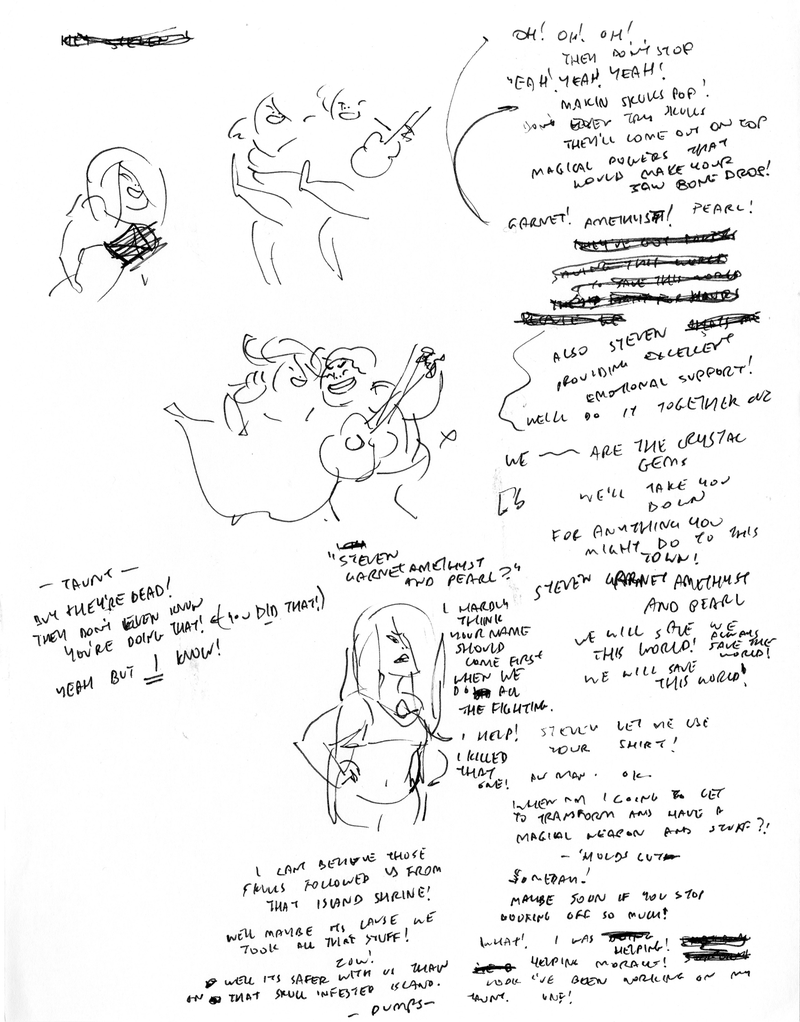 OH! OH! OH!
THEY DON'T STOP
YEAH! YEAH! YEAH!
MAKIN SKULLS POP!
DON'T EVER TRY SKULLS
THEY'LL COME OUT ON TOP
MAGICAL POWERS THAT
WOULD MAKE YOUR
JAW BONE DROP!
GARNET! AMETHYST! PEARL!
ALSO STEVEN
PROVIDING EXCELLENT
EMOTIONAL SUPPORT!
WE'LL DO IT TOGETHER
WE — ARE THE CRYSTAL
GEMS
WE'LL TAKE YOU
DOWN
FOR ANYTHING YOU
MIGHT DO TO THIS
TOWN!
STEVEN GARNET AMETHYST
AND PEARL
WE WILL SAVE WE
THIS WORLD! ALWAYS
SAVE THE
WORLD!
WE WILL SAVE
THIS WORLD!
- TAUNT -
BUT THEY'RE DEAD!
THEY DON'T EVEN KNOW
YOU'RE DOING THAT! (YOU DID THAT!)
YEAH BUT I KNOW!
"STEVEN
GARNET AMETHYST
AND PEARL?"
I HARDLY
THINK
YOUR NAME
SHOULD
COME FIRST
WHEN WE
DO ALL
THE FIGHTING.
I HELP!
I KILLED
THAT
ONE!
STEVEN LET ME USE
YOUR SHIRT!
AW MAN. OK
WHEN AM I GOING TO GET
TO TRANSFORM AND HAVE A
MAGICAL WEAPON AND STUFF?!
SOMEDAY!
MAYBE SOON IF YOU STOP
GOOFING OFF SO MUCH!
WHAT! I WAS HELPING!
HELPING MORALE!
LOOK I'VE BEEN WORKING ON MY
TAUNT. ONE!
I CANT BELIEVE THOSE
SKULLS FOLLOWED US FROM
THAT ISLAND SHRINE!
WELL MAYBE ITS CAUSE WE
TOOK ALL THAT STUFF!
WELL ITS SAFER WITH US THAN
ON THAT SKULL INFESTED ISLAND.
- DUMPS -